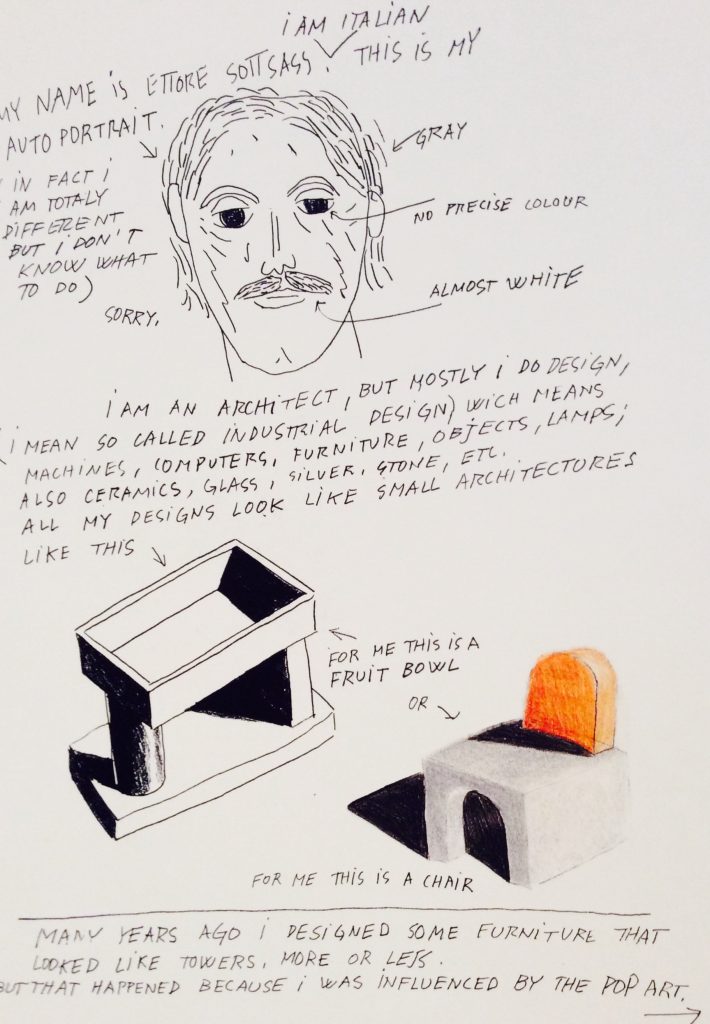 I AM ITALIAN
MY NAME IS ETTORE SOTTSASS. THIS IS MY
AUTO PORTRAIT.
GRAY
(IN FACT I
AM TOTALY
DIFFERENT
BUT I DON'T
KNOW WHAT
TO DO)
SORRY.
NO PRECISE COLOUR
ALMOST WHITE
I AM AN ARCHITECT, BUT MOSTLY I DO DESIGN,
(I MEAN SO CALLED INDUSTRIAL DESIGN) WICH MEANS
MACHINES, COMPUTERS, FURNITURE, OBJECTS, LAMPS;
ALSO CERAMICS, GLASS, SILVER, STONE, ETC.
ALL MY DESIGNS LOOK LIKE SMALL ARCHITECTURES
LIKE THIS
FOR ME THIS IS A
FRUIT BOWL
OR
FOR ME THIS IS A CHAIR
MANY YEARS AGO I DESIGNED SOME FURNITURE THAT
LOOKED LIKE TOWERS, MORE OR LESS.
BUT THAT HAPPENED BECAUSE I WAS INFLUENCED BY THE POP ART.